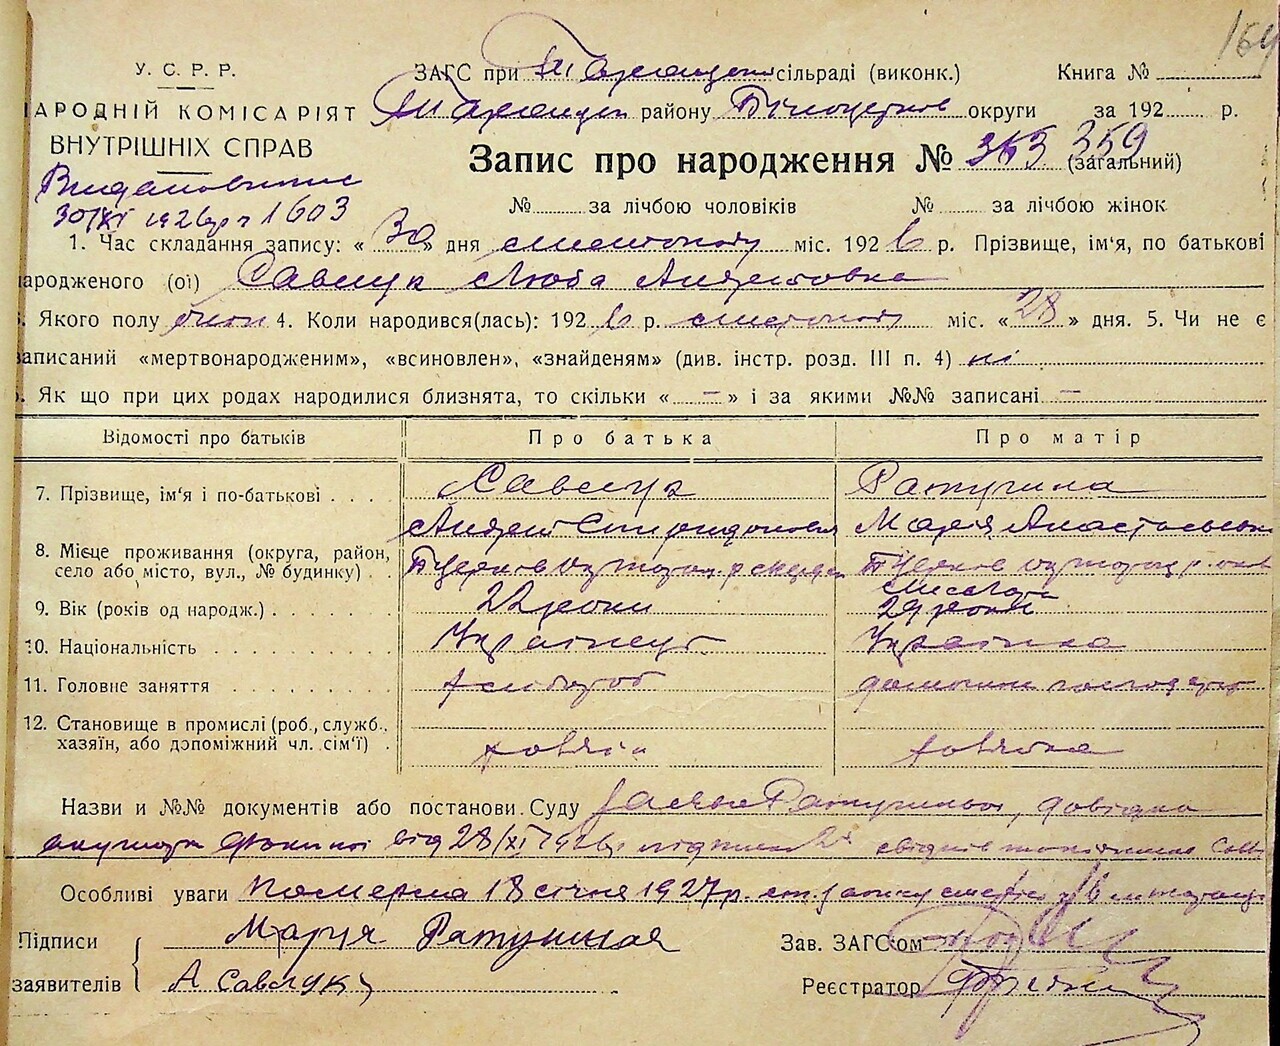 164
У. С. Р. Р.
ЗАГС при сільраді (виконк.) Книга №
НАРОДНІЙ КОМІСАРІЯТ
району Білоцерків округи за 192 р.
ВНУТРІШНІХ СПРАВ
Запис про народження № 353 359 (загальний)
30/XI 1926 р № 1603
№ за лічбою чоловіків № за лічбою жінок
1. Час складання запису: « 30 » дня листопаду міс. 192 6 р. Прізвище, ім'я, по батькові
ародженого (ої) Савлук Люба Андреївна
Якого полу жін 4. Коли народився(лась): 192 6 р. листопаду міс. « 28 » дня. 5. Чи не є
записаний «мертвонародженим», «всиновлен», «знайденям» (див. інстр. розд. III п. 4) ні
Як що при цих родах народилися близнята, то скільки « — » і за якими №№ записані —
Відомості про батьків Про батька Про матір
7. Прізвище, ім'я і по-батькові Савлук Ратушна
Андрей Спиридонович Марія Анастасьевна
8. Місце проживання (округа, район,
село або місто, вул., № будинку)
9. Вік (років од народж.) 22 роки 29 роки
10. Національність Українець Українка
11. Головне заняття хлібороб домашнє господар
12. Становище в промислі (роб., служб.,
хазяїн, або допоміжний чл. сім'ї) хазяїн хазяйка
Назви и №№ документів або постанови Суду довідка
від 28/XI 1926
Особливі уваги Померла 18 січня 1927 р.
Підписи Марія Ратушная Зав. ЗАГС'ом
заявителів А Савлук Реєстратор